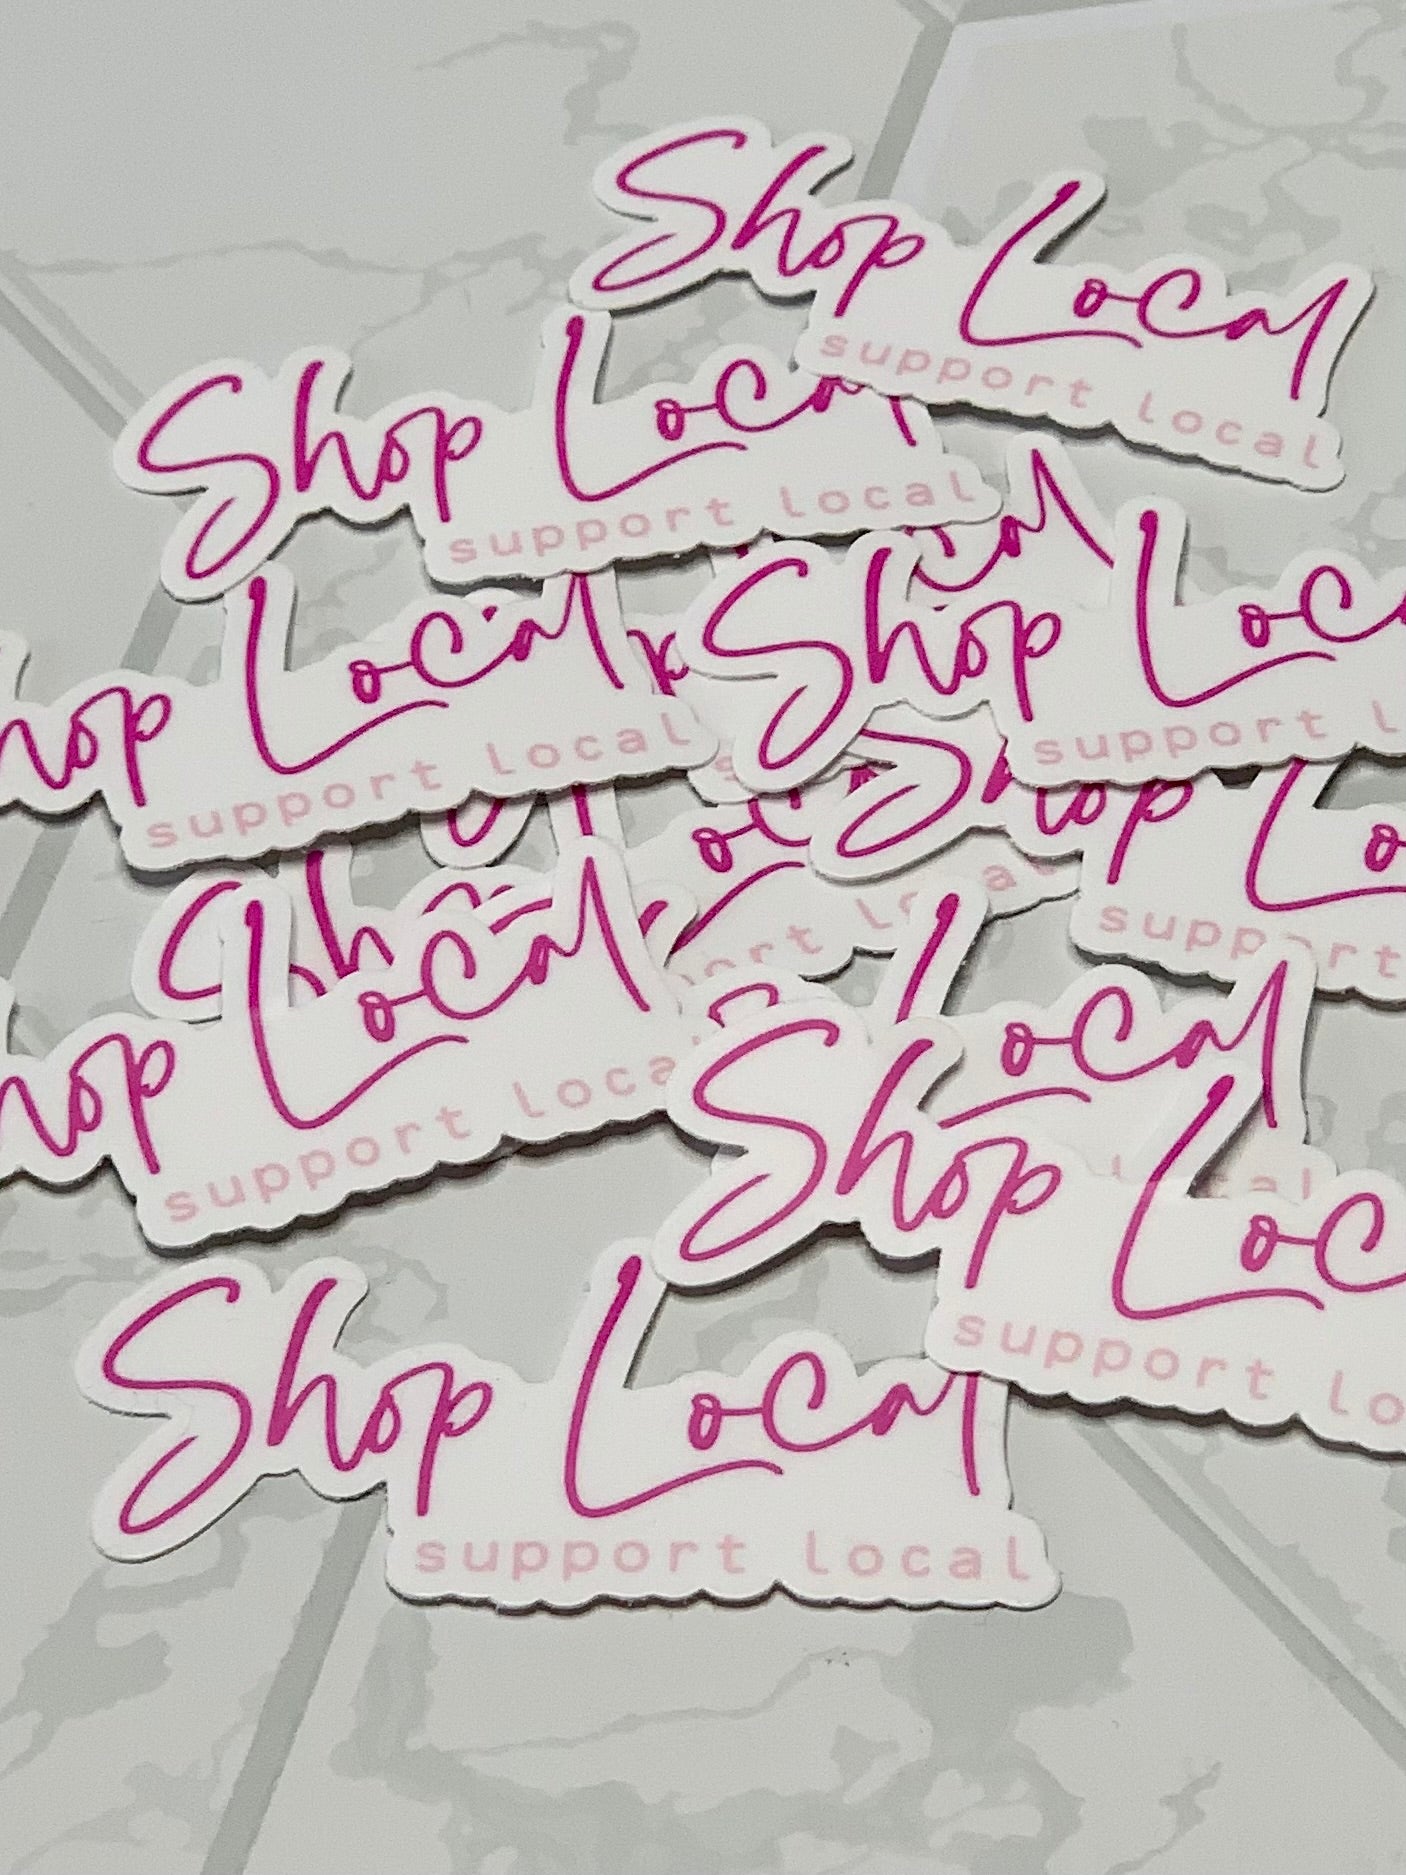 Shop Local
support local
Shop Local
support local
Shop Loc
support l
hop Local
support local
Shop Lo
support
hop Local
support local
ocal
Shop Loc
support lo
Shop Local
support local